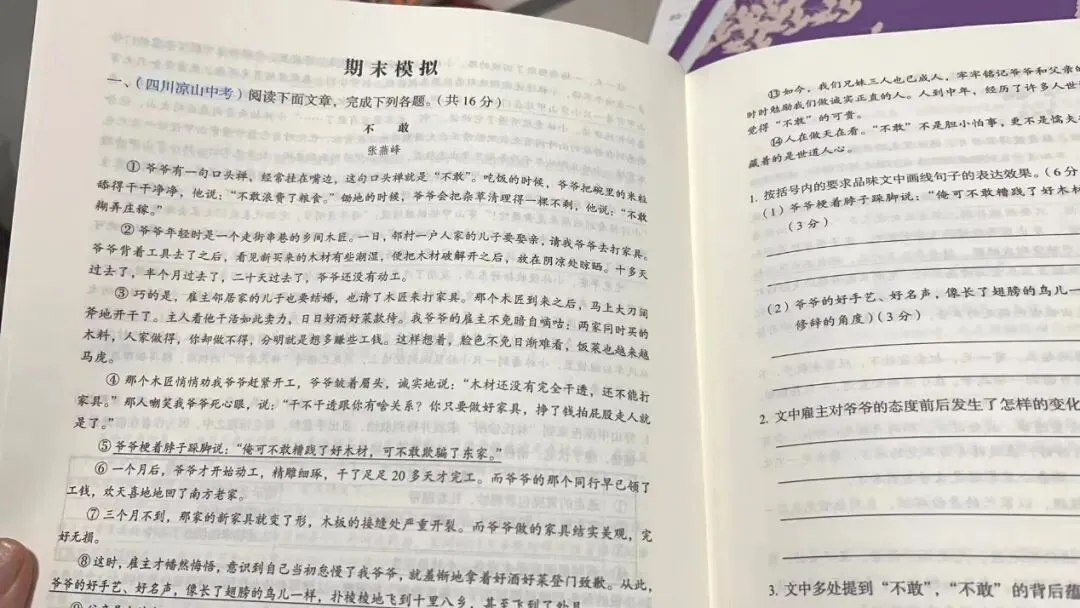 期末模拟
一、（四川凉山中考）阅读下面文章，完成下列各题。（共16分）
不 敢
张燕峰
① 爷爷有一句口头禅，经常挂在嘴边，这句口头禅就是“不敢”。吃饭的时候，爷爷把碗里的米粒
舔得干干净净，他说：“不敢浪费了粮食。”锄地的时候，爷爷会把杂草清理得一棵不剩，他说：“不敢
糊弄庄稼。”
② 爷爷年轻时是一个走街串巷的乡间木匠。一日，邻村一户人家的儿子要娶亲，请我爷爷去打家具。
爷爷背着工具去了之后，看见新买来的木材有些潮湿，便把木材破解开之后，放在阴凉处晾晒。十多天
过去了，半个月过去了，二十天过去了，爷爷还没有动工。
③ 巧的是，雇主邻居家的儿子也要结婚，也请了木匠来打家具。那个木匠到来之后，马上大刀阔
斧地开干了。主人看他干活如此卖力，日日好酒好菜款待。我爷爷的雇主不免暗自嘀咕：两家同时买的
木料，人家做得，你却做不得，分明就是想多赚些工钱。这样想着，脸色不免日渐难看，饭菜也越来越
马虎。
④ 那个木匠悄悄劝我爷爷赶紧开工，爷爷皱着眉头，诚实地说：“木材还没有完全干透，还不能打
家具。”那人嘲笑我爷爷死心眼，说：“干不干透跟你有啥关系？你只要做好家具，挣了钱拍屁股走人就
是了。”
⑤ 爷爷梗着脖子跺脚说：“俺可不敢糟践了好木材，可不敢欺骗了东家。”
⑥ 一个月后，爷爷才开始动工，精雕细琢，干了足足20多天才完工。而爷爷的那个同行早已领了
工钱，欢天喜地地回了南方老家。
⑦ 三个月不到，那家的新家具就变了形，木板的接缝处严重开裂。而爷爷做的家具结实美观，完
好无损。
⑧ 这时，雇主才幡然悔悟，意识到自己当初怠慢了我爷爷，就羞惭地拿着好酒好菜登门致歉。从此，
爷爷的好手艺、好名声，像长了翅膀的鸟儿一样，扑棱棱地飞到十里八乡，甚至飞到了外县。
⑬ 如今，我们兄妹三人也已成人，牢牢铭记爷爷和父亲的
时时勉励我们做诚实正直的人。人到中年，经历了许多人世
觉得“不敢”的可贵。
⑭ 人在做天在看。“不敢”不是胆小怕事，更不是懦夫
藏着的是世道人心。
1. 按括号内的要求品味文中画线句子的表达效果。（6分
（1）爷爷梗着脖子跺脚说：“俺可不敢糟践了好木材
（3分）
（2）爷爷的好手艺、好名声，像长了翅膀的鸟儿一
修辞的角度）（3分）
2. 文中雇主对爷爷的态度前后发生了怎样的变化
3. 文中多处提到“不敢”，“不敢”的背后蕴